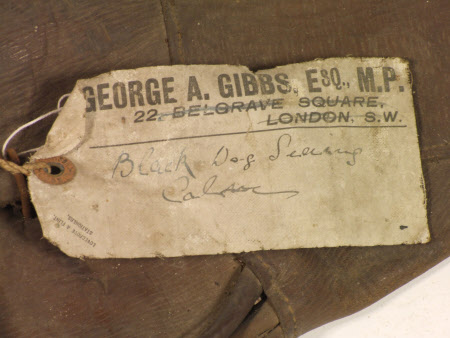 GEORGE A. GIBBS, ESQ., M.P.
22, BELGRAVE SQUARE,
LONDON, S.W.
Black Dog